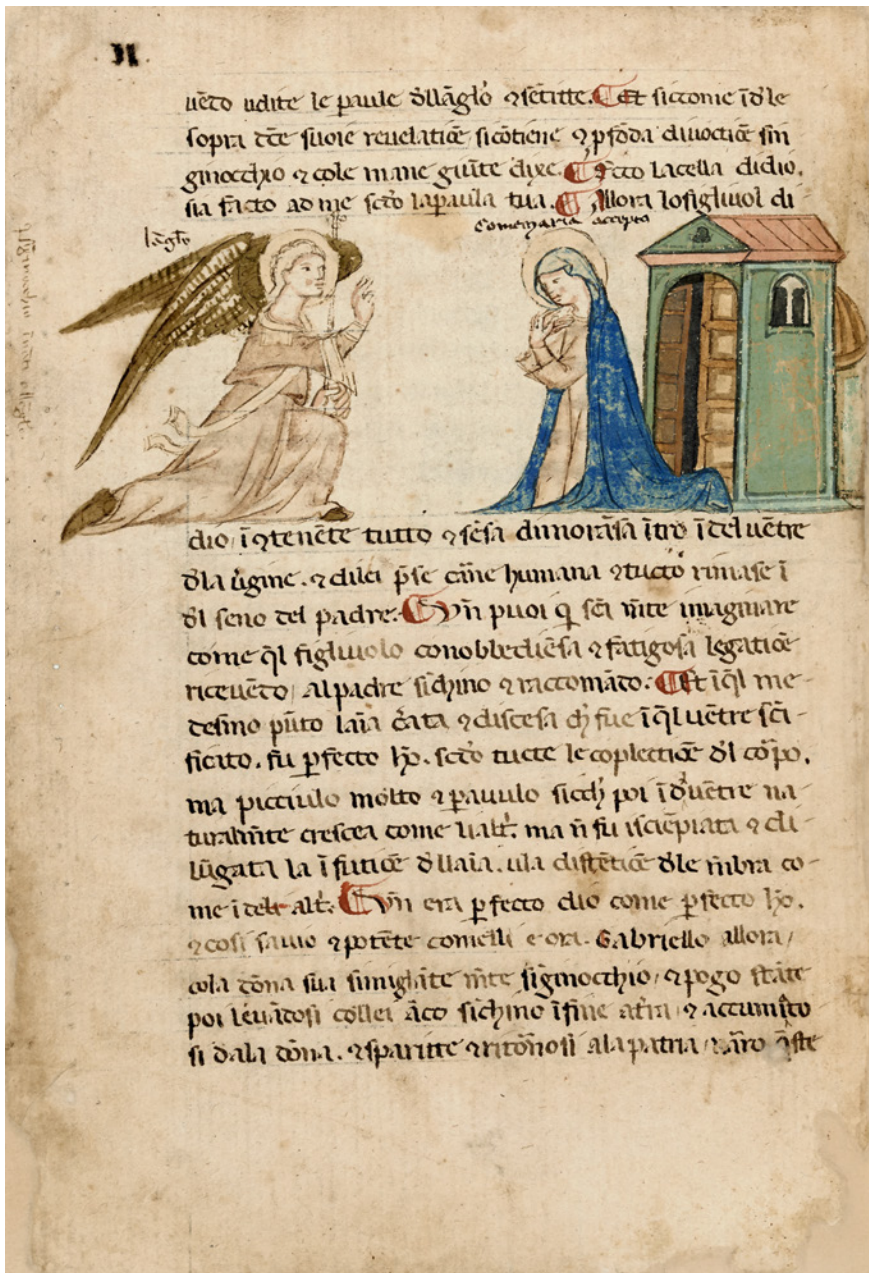 uēdo udite le paule dllāglo ⁊ sētitte. Et siccome ī dle
sopra dc̄e suoie reuelatiōe sicōtiene ⁊ p̄fōda diuoctiōe sin
ginocchio ⁊ cole mane giūte dixe. Ecco lacella didio.
sia facto ad me sc̄do la paula tua. Allora lo figliuol di
lāglo
come maria
dio ī ⁊tenēte tutto ⁊ sēsa dimorāsa ītrò ī del uētre
dla ūgine. ⁊ di lei p̄se carne humana ⁊ tucto rimase ī
dl seno del padre. puoi q̄ sc̄i mēte imaginare
come q̄l figliuolo con obbediēsa ⁊ fatigosa legatiōe
riceuēdo al padre sichino ⁊ raccomādo. Et ī q̄l me-
desmo pūto laīa c̄ata ⁊ discesa ch̄ fue ī q̄l uētre sc̄i-
ficato. fu ꝑfecto ho. sc̄do tucte le coplectiōe dl corpo.
ma picciulo molto ⁊ pauulo sicch̄ poi ī dl uētre na-
turalmēte crescea come li alt. ma n̄ fu
lūgata la ī futiōe dllaīa. u la distētiōe dle mēbra co-
me ī deli alt. era ꝑfecto dio come ꝑfecto ho.
⁊ cosi sauio ⁊ potēte come elli e ora. Gabriello allora
cola dōna sua simigliāte mēte singinocchio, ⁊ pogo stāte
poi leuādosi collei āco sichino ī fine a tr̄a ⁊ accumiato
si dala dōna. ⁊ sparitte ⁊ ritōnosi ala patria